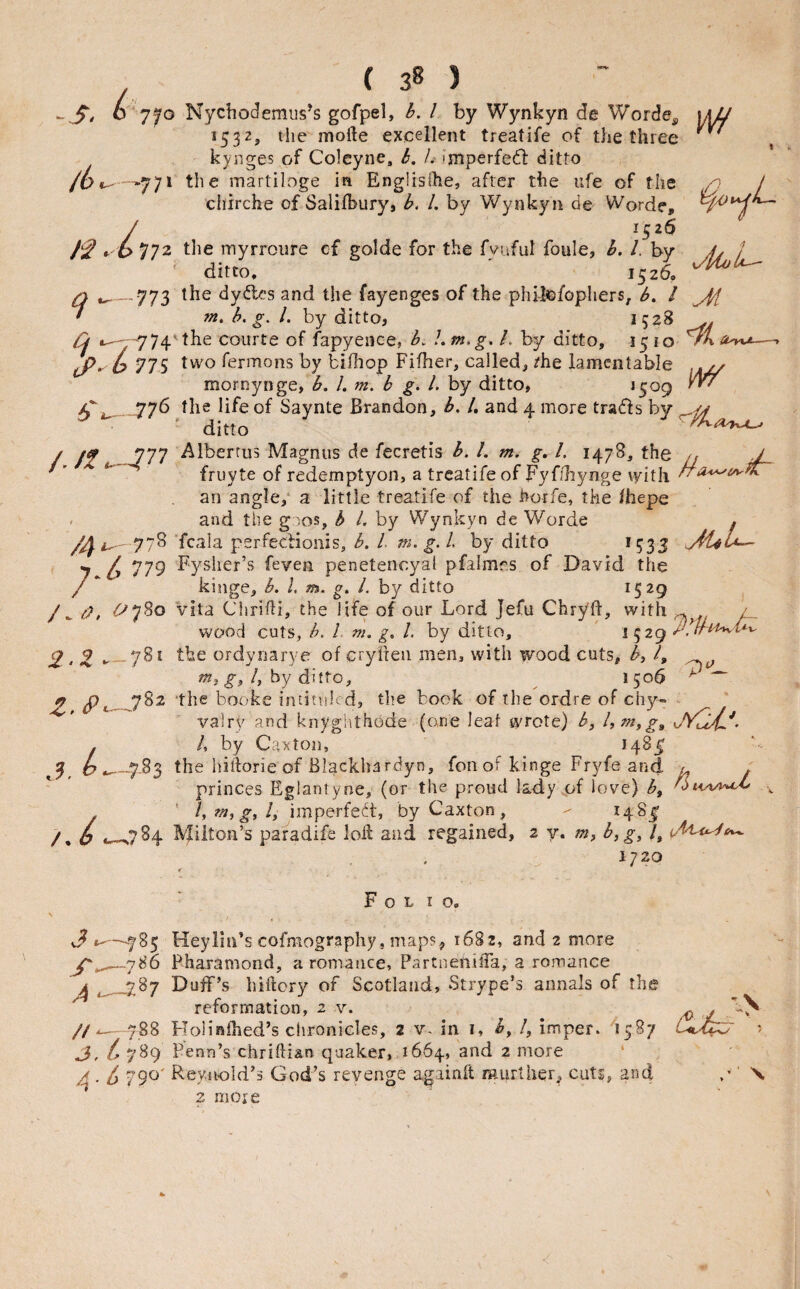 ( 38 )
5. 6 770 Nychodemus's gospel, b. l by Wynkyn de Worde, WH
1532, the moste excellent treatise of the three
kynges of Coleyne, b. l. imperfect ditto
16 771 the martiloge in Englisshe, after the use of the
chirche of Salisbury, b. l. by Wynkyn de Worde,
1526
12 . 6 772 the myrroure of golde for the synful soule, b. l. by
ditto, 1526,
9 773 the dyctes and the sayenges of the philosophers, b. l
m. b. g. l. by ditto, 1528
9 774 the courte of sapyence, b. l. m. g. l. by ditto, 1510
8. 6 775 two sermons by bishop Fisher, called, the lamentable
mornynge, b. l. m. b g. l. by ditto, 1509 WH
5 776 the life of Saynte Brandon, b. l. and 4 more tracts by
ditto
1. 12 777 Albertus Magnus de secretis b. l. m. g. l. 1478, the
fruyte of redemptyon, a treatise of Fysshynge with
an angle, a little treatise of the horse, the shepe
and the goos, b l. by Wynkyn de Worde
14 778 scala perfectionis, b. l. m. g. l. by ditto 1533
7. 6 779 Fysher's seven penetencyal psalmes of David the
kinge, b. l. m. g. l. by ditto 1529
1. 0, 0 780 vita Christi, the life of our Lord Jesu Chryst, with
wood cuts, b. l. m. g. l. by ditto, 1529
2. 2 781 the ordynarye of crysten men, with wood cuts, b, l,
m, g, l, by ditto, 1506
2. 8 782 the booke intituled, the book of the ordre of chy-
valry and knyghthode (one leaf wrote) b, l, m, g,
l, by Caxton, 1485
3. 6 783 the historie of Blackhardyn, son of kinge Fryse and
princes Eglantyne, (or the proud lady of love) b,
l, m, g, l, imperfect, by Caxton, 1485
1. 6 784 Milton's paradise lost and regained, 2 v. m, b, g, l,
1720
FOLIO.
3 785 Heylin's cosmography, maps, 1682, and 2 more
5 786 Pharamond, a romance, Partnenissa, a romance
4 787 Duff's history of Scotland, Strype's annals of the
reformation, 2 v.
11 788 Holinshed's chronicles, 2 v. in 1, b, l, imper. 1587
3. 6 789 Penn's christian quaker, 1664, and 2 more
4. 6 790 Reynold's God's revenge against murther, cuts, and
2 more